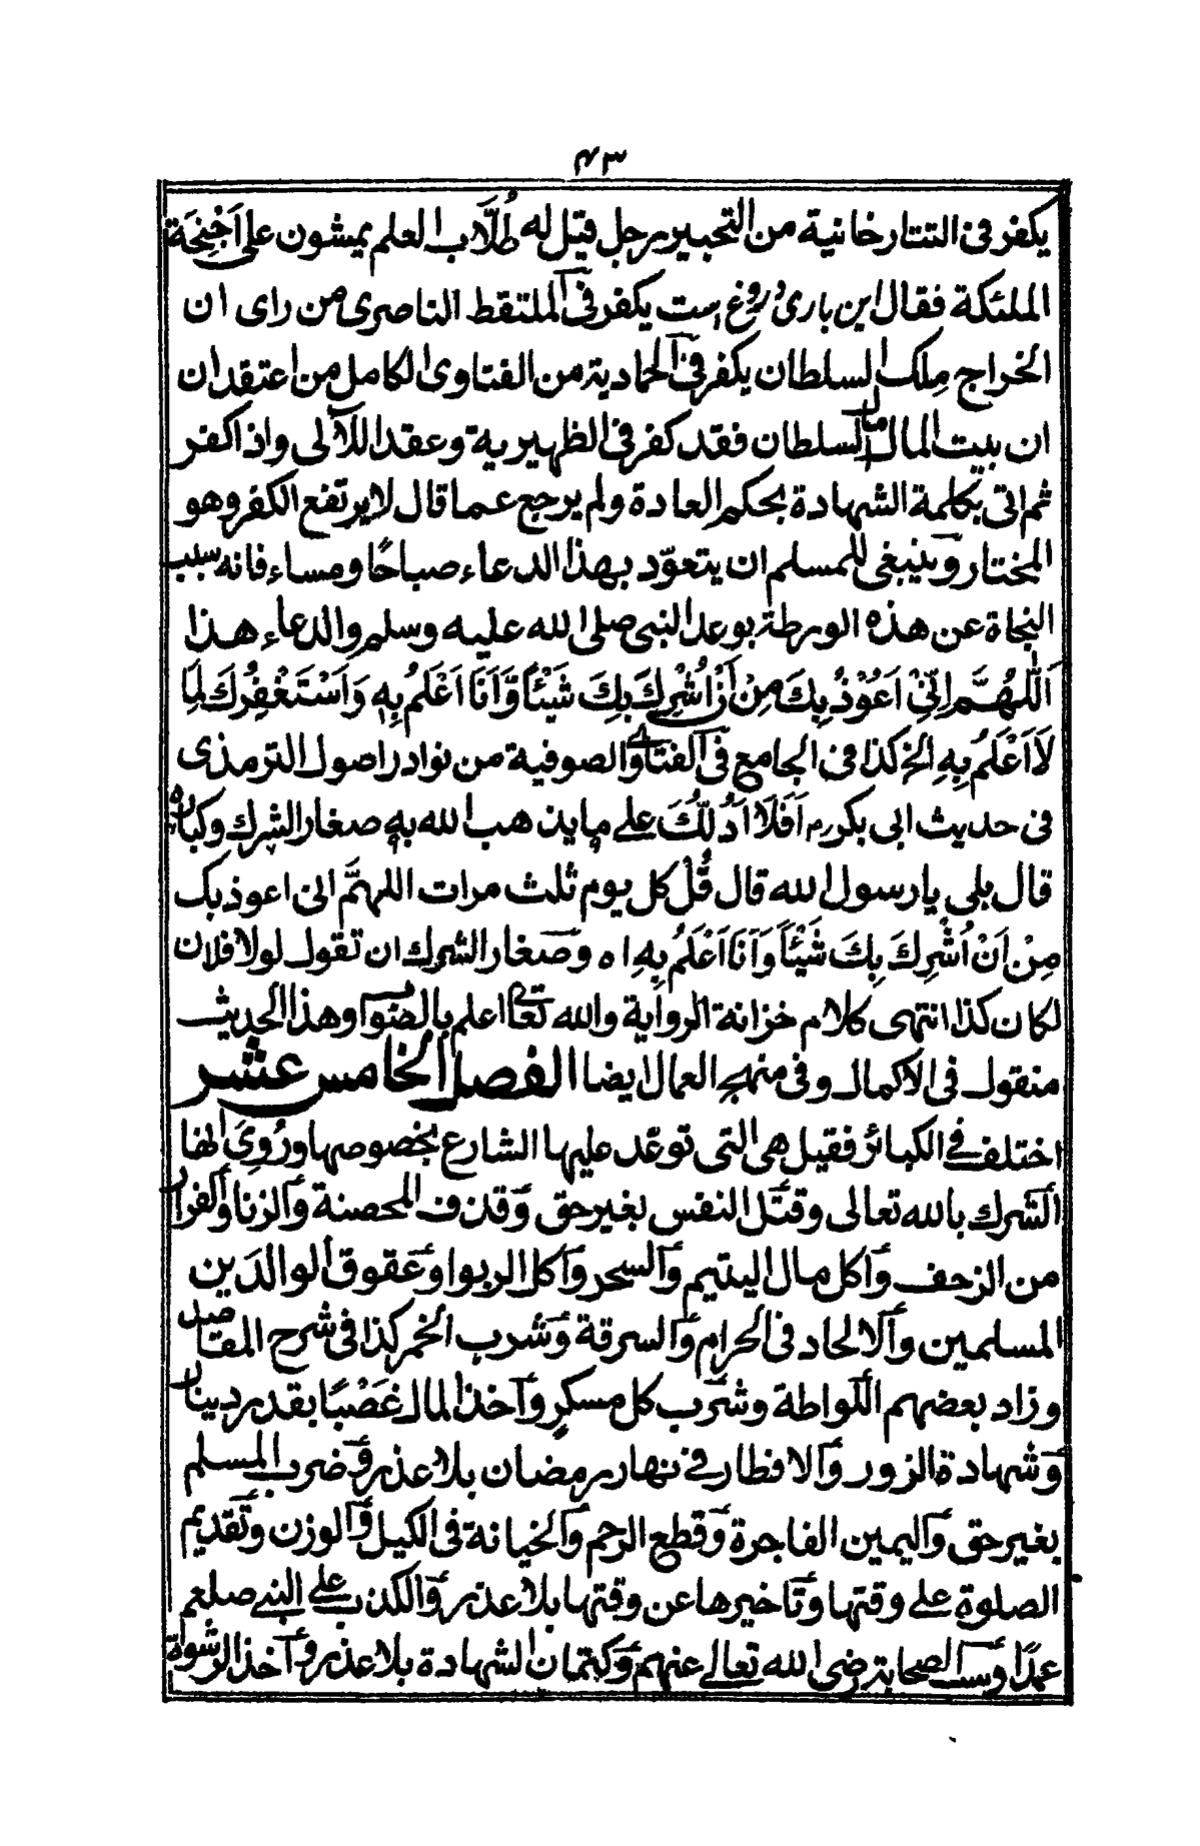 ٤٣
يكفر فى التتارخانية من التحبير رجل قيل له طُلَّاب العلم يمشون على اَجْنِحَة
الملئكة فقال اين بارى دروغ است يكفر فى الملتقط الناصرى من راى ان
الخراج ملك السلطان يكفر فى الحمادية من الفتاوى الكامل من اعتقد ان
ان بيت المال مال السلطان فقد كفر فى الظهيرية وعقد اللآلى واذا كفر
ثم اتى بكلمة الشهادة بحكم العادة ولم يرجع عما قال لا يرتفع الكفر وهو
المختار وينبغى للمسلم ان يتعوّد بهذا الدعاء صباحًا ومساء فانه سبب
النجاة عن هذه الورطة بوعد النبى صلى الله عليه وسلم والدعاء هذا
اَللّٰهُمَّ اِنِّىْ اَعُوْذُ بِكَ مِنْ اَنْ اُشْرِكَ بِكَ شَيْئًا وَّاَنَا اَعْلَمُ بِهٖ وَاَسْتَغْفِرُكَ لِمَا
لَا اَعْلَمُ بِهٖ الخ كذا فى الجامع فى الفتاوى الصوفية من نوادر اصول الترمذى
فى حديث ابى بكر رم اَفَلَا اَدُلُّكَ على ما يذهب الله به صغار الشرك وكباره
قال بلى يا رسول الله قال قُلْ كل يوم ثلث مرات اللهمَّ انى اعوذ بك
مِنْ اَنْ اُشْرِكَ بِكَ شَيْئًا وَاَنَا اَعْلَمُ بِهٖ اه وصغار الشرك ان تقول لولا فلان
لكان كذا انتهى كلام خزانة الرواية والله تعالى اعلم بالصواب وهذا الحديث
منقول فى الاكمال وفى منهج العمال ايضا الفصل الخامس عشر
اختلف فى الكبائر فقيل هى التى توعّد عليها الشارع بخصوصها ورُوِىَ انها
الشرك بالله تعالى وقتل النفس بغير حق وقذف المحصنة والزنا والفرار
من الزحف واكل مال اليتيم والسحر واكل الربوا وعقوق الوالدَين
المسلمين والالحاد فى الحرام والسرقة وشرب الخمر كذا فى شرح المقاصد
وزاد بعضهم اللواطة وشرب كل مسكرٍ واخذ المال غَصْبًا بقدر دينار
وشهادة الزور والافطار فى نهار رمضان بلا عذر وضرب المسلم
بغير حق واليمين الفاجرة وقطع الرحم والخيانة فى الكيل والوزن وتقديم
الصلوة على وقتها وتاخيرها عن وقتها بلا عذر والكذب على النبى صلعم
عمدًا وسب الصحابة رضى الله تعالى عنهم وكتمان الشهادة بلا عذر واخذ الرشوة